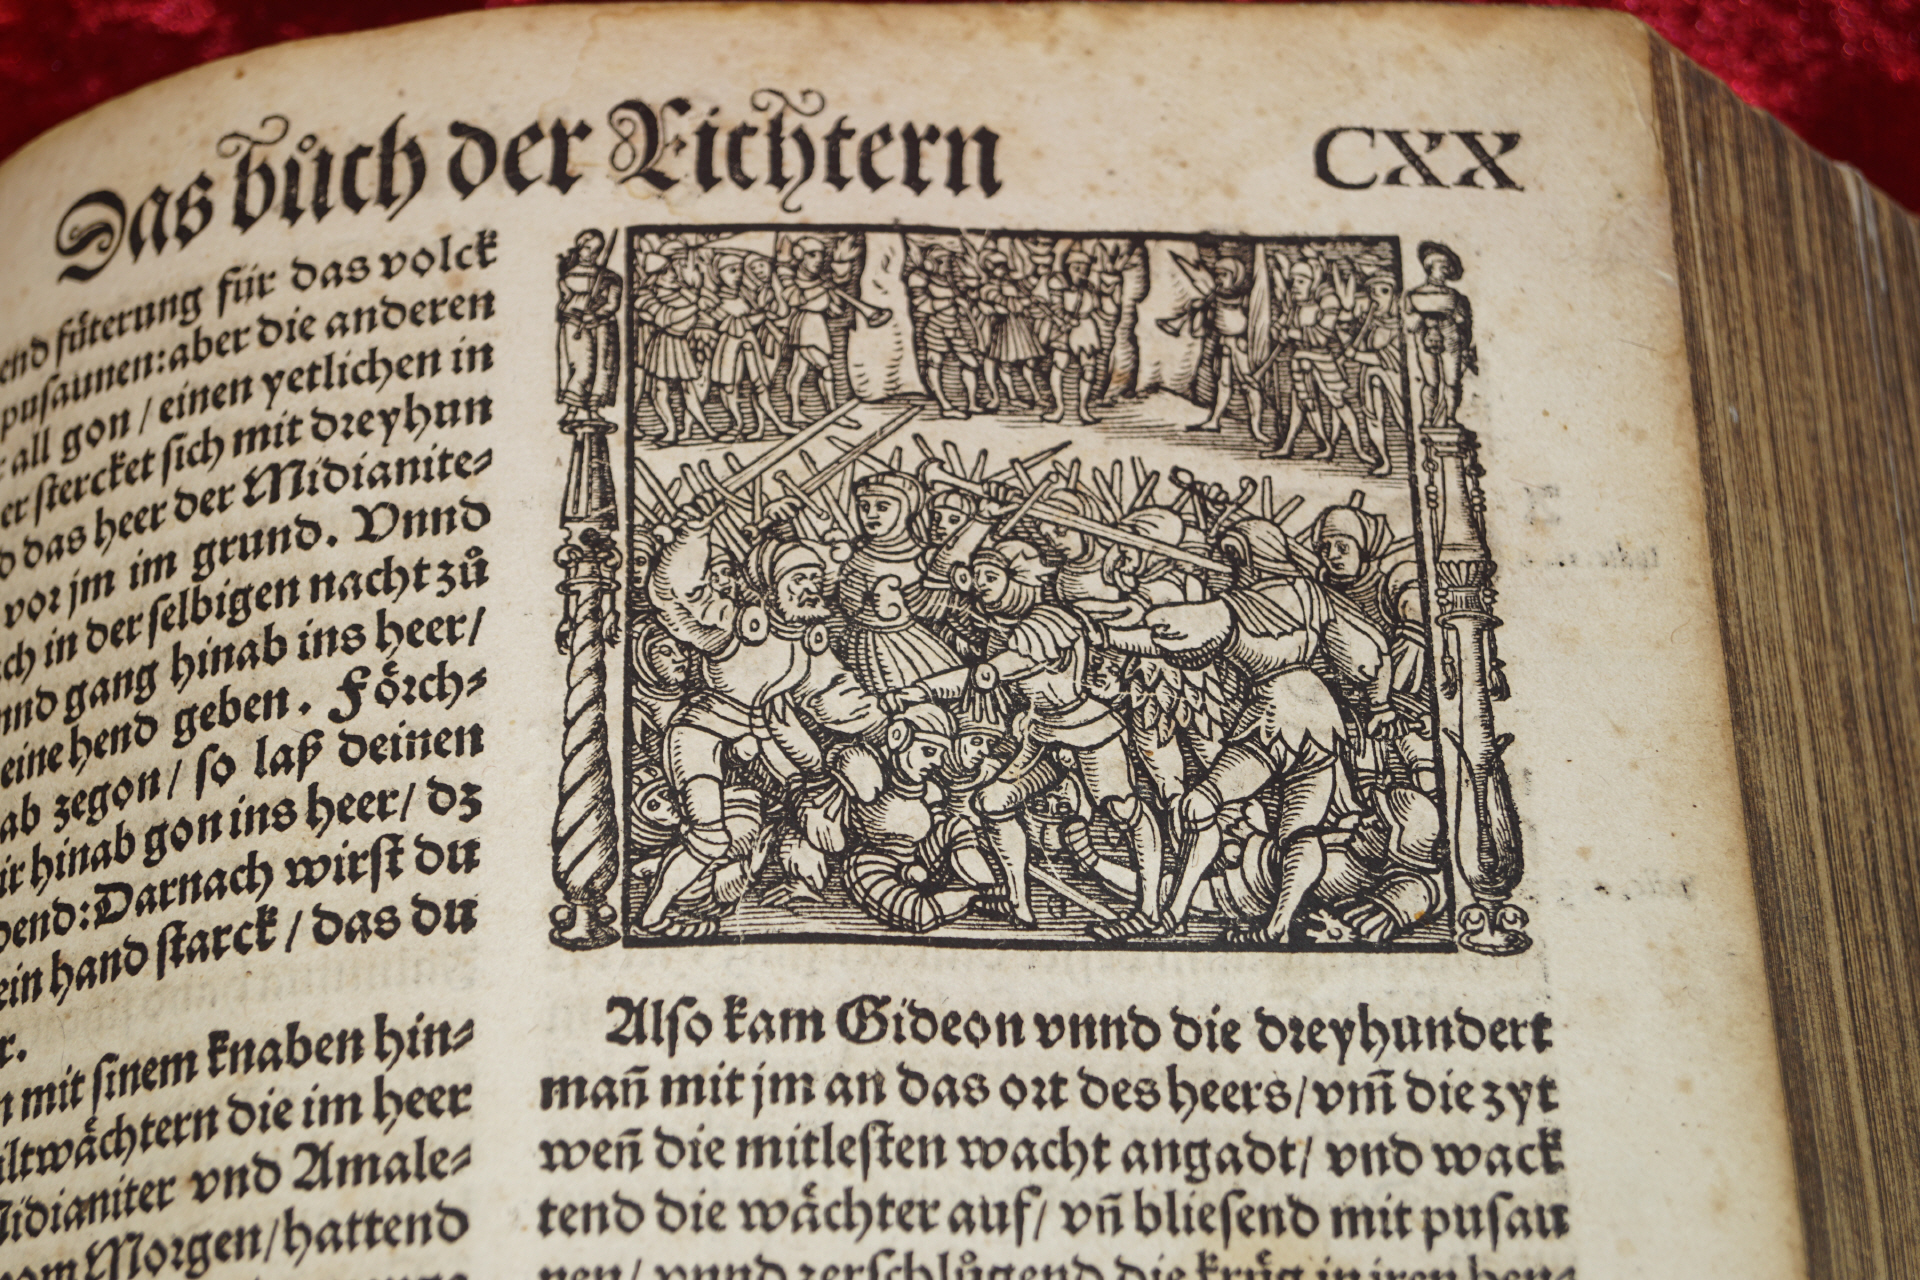 Das bůch der Richtern CXX
end fůterung für das volck
pusaunen: aber die anderen
all gon / einen yetlichen in
er stercket sich mit dreyhun
das heer der Midianite⸗
vor jm im grund. Vnnd
in der selbigen nacht zů
nnd gang hinab ins heer/
eine hend geben. Förch⸗
ab zegon / so laß deinen
hinab gon ins heer / dz
end: Darnach wirst du
ein hand starck / das du
r.
mit sinem knaben hin⸗
wächtern die im heer
Midianiter vnd Amale⸗
Morgen / hattend
Also kam Gideon vnnd die dreyhundert
mañ mit jm an das ort des heers / vm̃ die zyt
weñ die mitlesten wacht angadt / vnd wack
tend die wächter auf / vñ bliesend mit pusau
nen / vnnd zerschlůgend die krüg in iren hen⸗